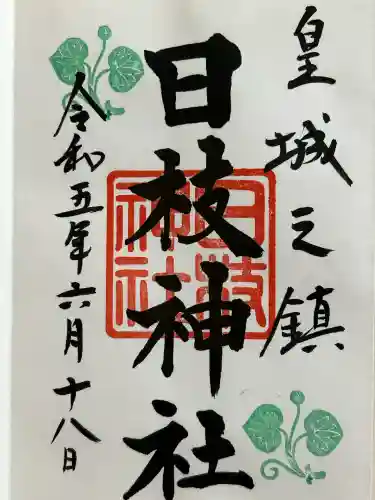 皇城之鎮
日枝神社
令和五年六月十八日
日枝
神社